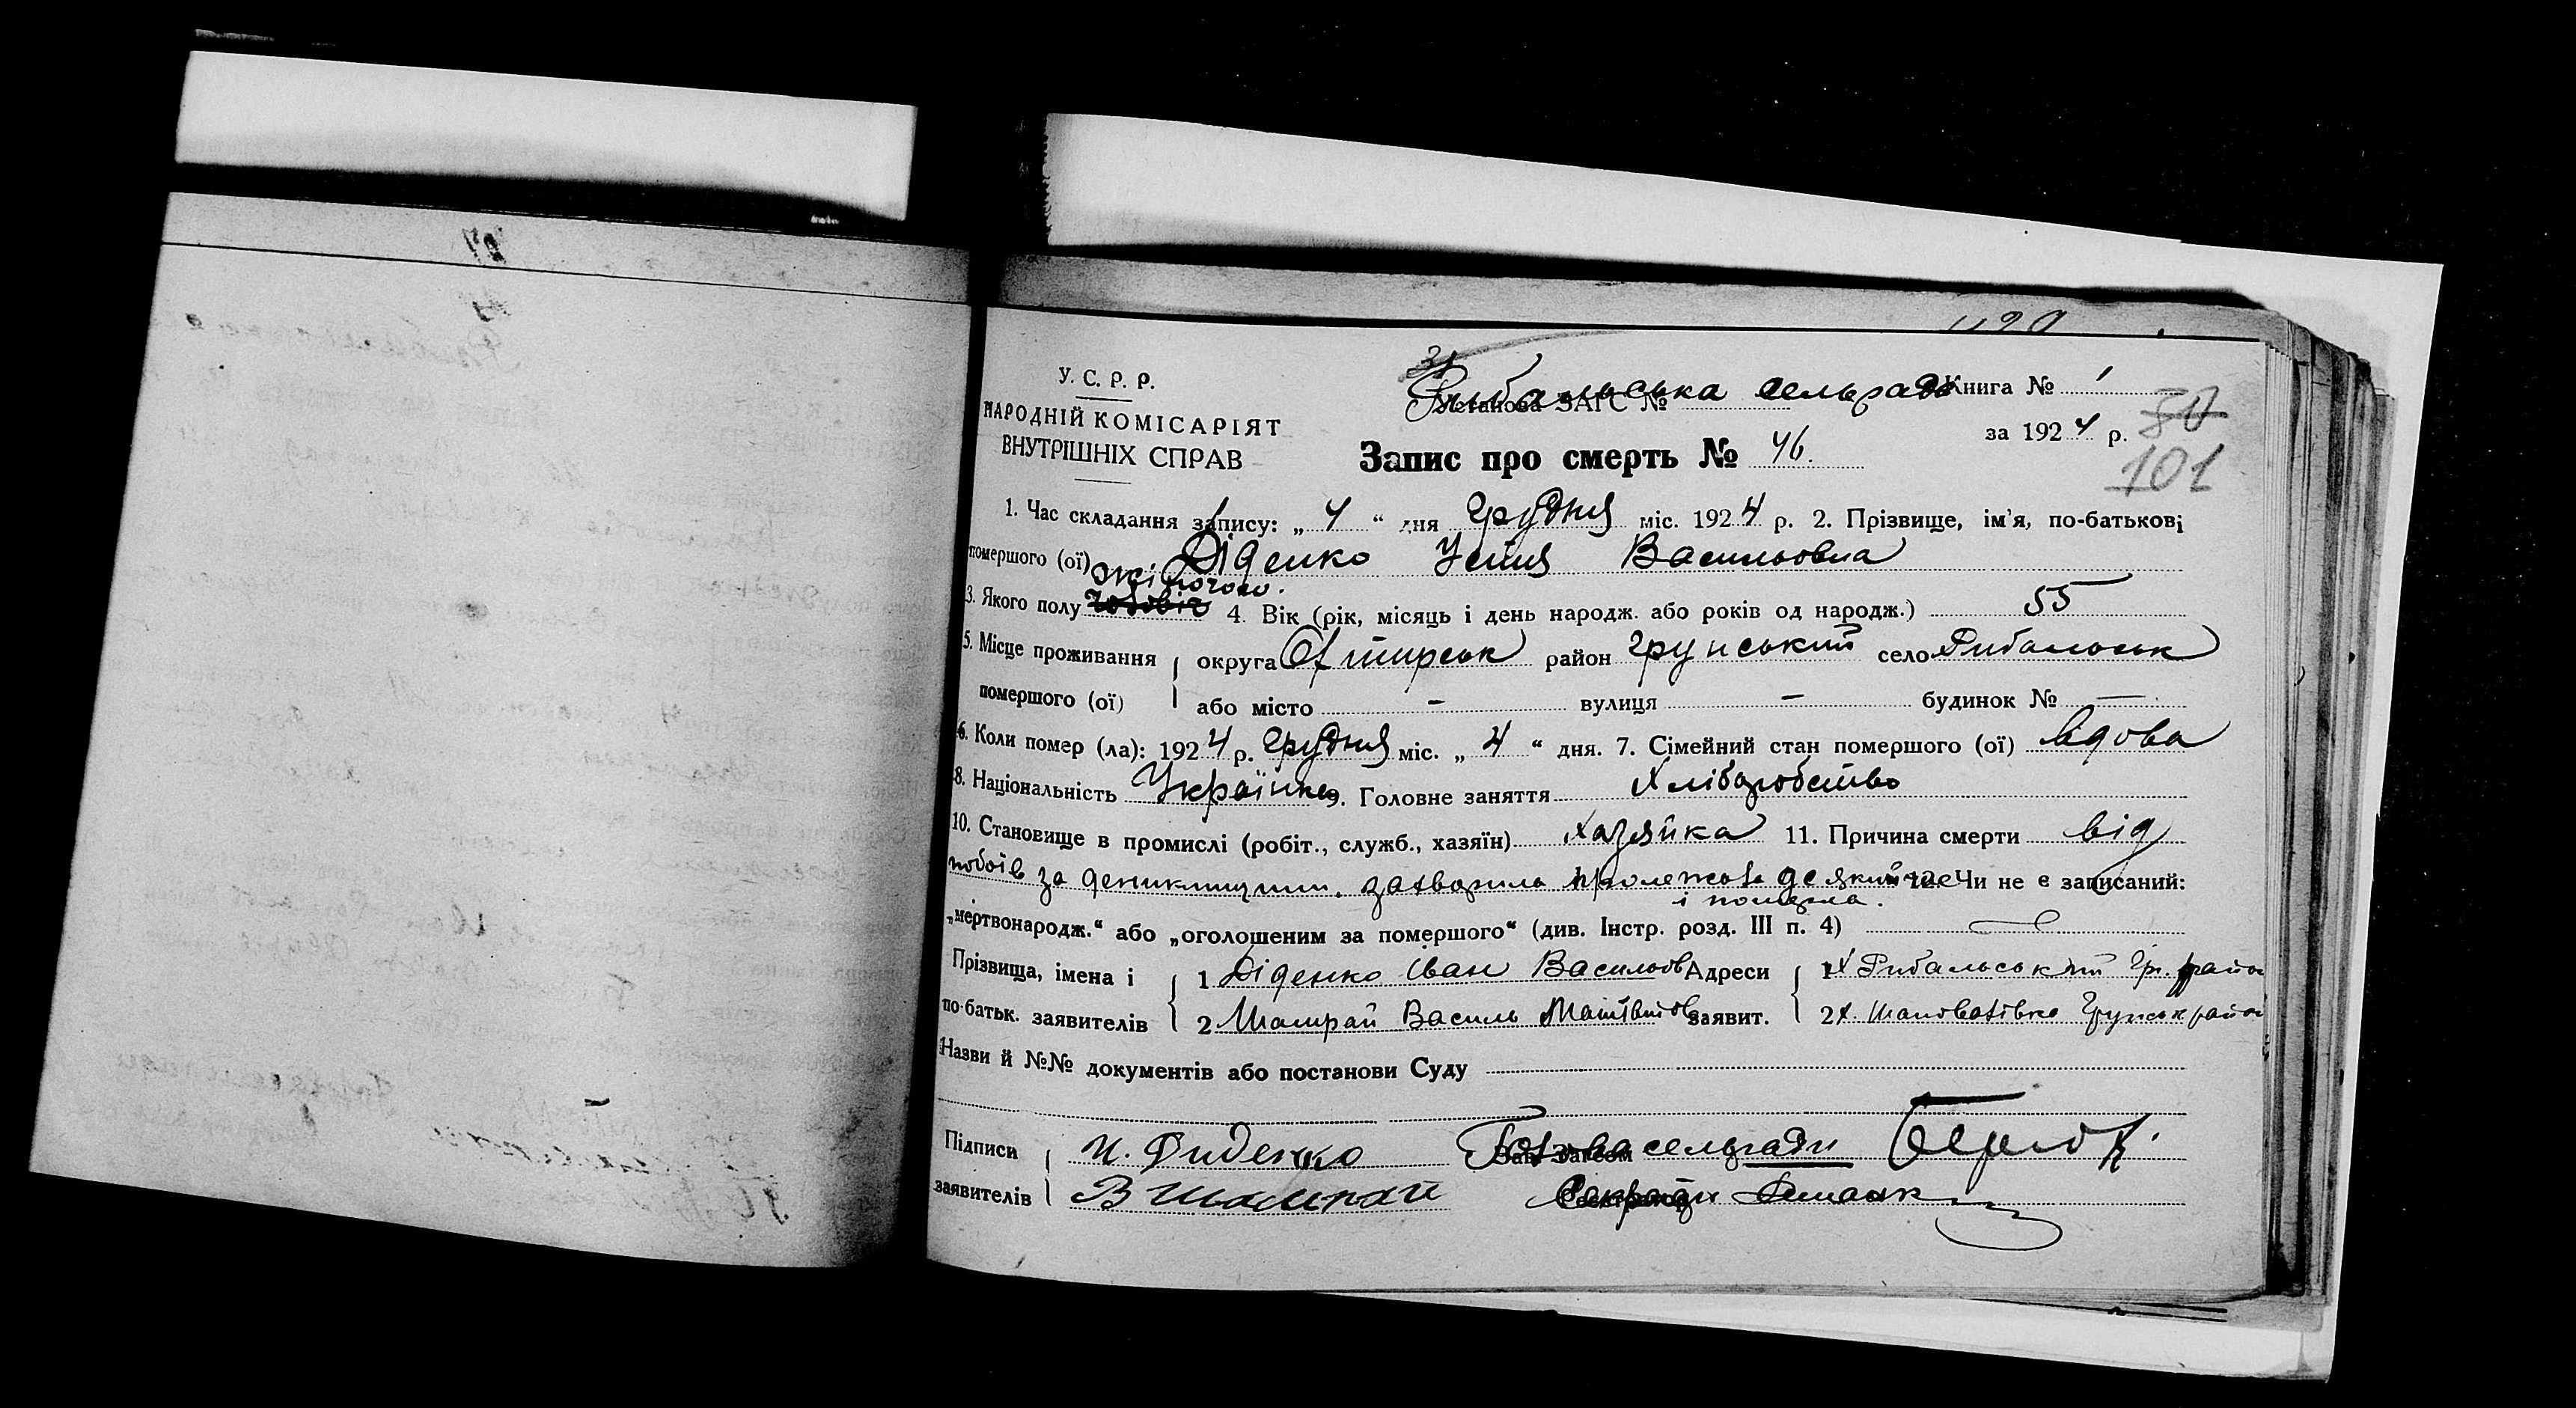 У. С. Р. Р.
НАРОДНІЙ КОМІСАРІЯТ
ВНУТРІШНІХ СПРАВ
Рибальська сельрада Книга № 1
ЗАГС №
за 1924 р. 101
Запис про смерть № 46.
1. Час складання запису: „ 4 “ дня Грудня міс. 1924 р. 2. Прізвище, ім'я, по-батькові
помершого (ої) Діденко Устя Васильовна
жіночого.
3. Якого полу 4. Вік (рік, місяць і день народж. або років од народж.) 55
5. Місце проживання округа Охтирськ район Грунський село Рибальськ
помершого (ої) або місто - вулиця - будинок № -
6. Коли помер (ла): 1924 р. Грудня міс. „ 4 “ дня. 7. Сімейний стан помершого (ої) Вдова
8. Національність Українка 9. Головне заняття Хліборобство
10. Становище в промислі (робіт., служб., хазяїн) Хазяйка 11. Причина смерти від
побоїв за захворила пролежала деякий час 12. Чи не є записаний:
і померла.
„мертвонародж.“ або „оголошеним за помершого“ (див. Інстр. розд. III п. 4)
Прізвища, імена і 1 Діденко Іван Васильов Адреси 1 х Рибальський Гр. район
по-батьк. заявителів 2 Шамрай Василь Матвійов заявит. 2 х. Шаповалівка Грунськ район
Назви й №№ документів або постанови Суду
Підписи И. Диденко Голова сельради
заявителів В Шамрай Секрет